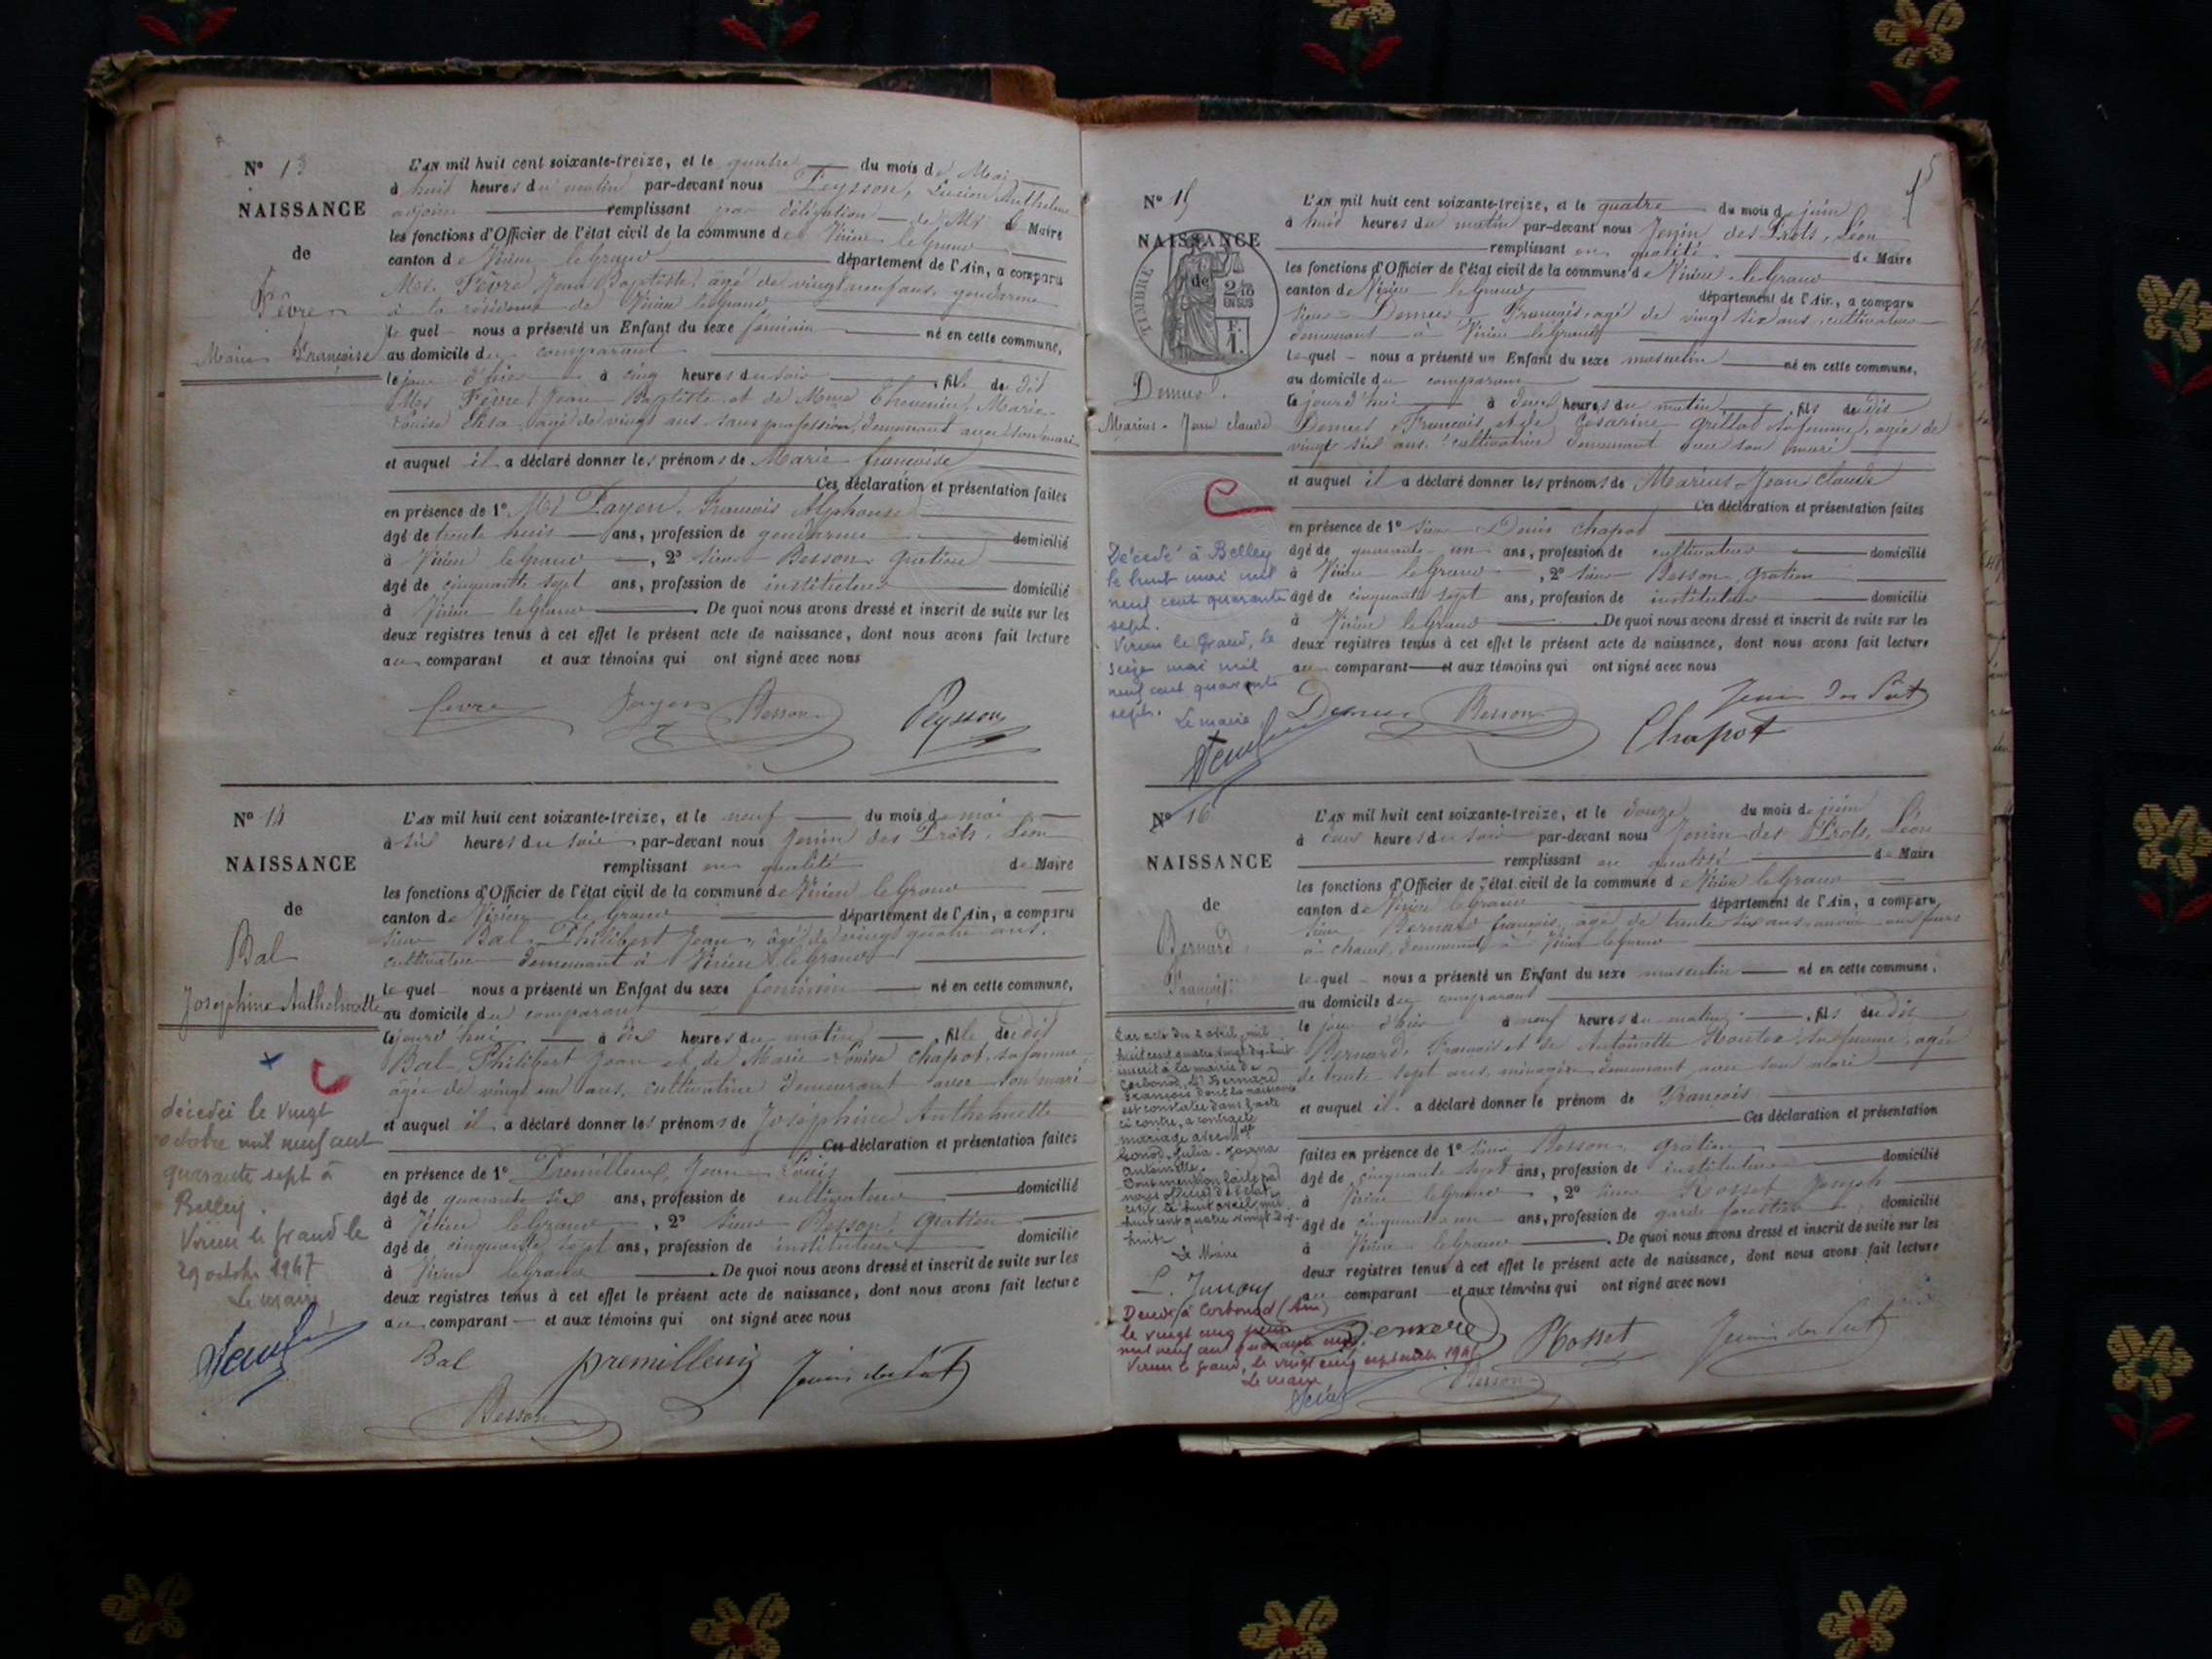 N° 13
NAISSANCE
de
Fèvre
Marie Françoise
L'AN mil huit cent soixante-treize, et le quatre du mois de Mai
à huit heures du matin par-devant nous Peysson, Lucien Anthelme
adjoint remplissant par délégation de Mr le Maire
les fonctions d'Officier de l'état civil de la commune de Virieu le Grand
canton de Virieu le Grand département de l'Ain, a comparu
Mr Fèvre Jean Baptiste, âgé de vingt neuf ans, gendarme
à la résidence de Virieu le Grand
le quel nous a présenté un Enfant du sexe féminin né en cette commune,
au domicile du comparant
le jour d'hier à cinq heures du soir, fille du dit
Mr Fèvre Jean Baptiste et de Mme Thevenin, Marie-
Louise Elisa, âgée de vingt ans, sans profession, demeurant avec son mari
et auquel il a déclaré donner les prénoms de Marie françoise
Ces déclaration et présentation faites
en présence de 1° Mr Payen, François Alphonse
âgé de trente huit ans, profession de gendarme domicilié
à Virieu le Grand, 2° sieur Besson Gratien
âgé de cinquante sept ans, profession de instituteur domicilié
à Virieu le Grand. De quoi nous avons dressé et inscrit de suite sur les
deux registres tenus à cet effet le présent acte de naissance, dont nous avons fait lecture
au comparant et aux témoins qui ont signé avec nous
fevre Payen Besson Peysson
N° 14
NAISSANCE
de
Bal
Joséphine Anthelmette
décédée le vingt
octobre mil neuf cent
quarante sept à
Belley.
Virieu le grand le
29 octobre 1947
Le maire
L'AN mil huit cent soixante-treize, et le neuf du mois de mai
à six heures du soir par-devant nous Jenin des Prots, Léon
remplissant en qualité de Maire
les fonctions d'Officier de l'état civil de la commune de Virieu le Grand
canton de Virieu le Grand département de l'Ain, a comparu
sieur Bal Philibert Jean, âgé de vingt quatre ans,
cultivateur demeurant à Virieu le Grand
le quel nous a présenté un Enfant du sexe féminin né en cette commune,
au domicile du comparant
le jourd'hui à dix heures du matin, fille du dit
Bal Philibert Jean et de Marie Louise Chapot, sa femme,
âgée de vingt un ans, cultivatrice demeurant avec son mari
et auquel il a déclaré donner les prénoms de Joséphine Anthelmette
Ces déclaration et présentation faites
en présence de 1° Premillieux, Jean Louis
âgé de quarante six ans, profession de cultivateur domicilié
à Virieu le Grand, 2° sieur Besson, Gratien
âgé de cinquante sept ans, profession de instituteur domicilié
à Virieu le Grand. De quoi nous avons dressé et inscrit de suite sur les
deux registres tenus à cet effet le présent acte de naissance, dont nous avons fait lecture
au comparant et aux témoins qui ont signé avec nous
Bal premilleux Jenin des Prots
Besson
N° 15
NAISSANCE
de
TIMBRE
2/10
EN SUS
F.
1.
Demus
Marius-Jean Claude
Décédé à Belley
le huit mai mil
neuf cent quarante
sept.
Virieu le Grand, le
seize mai mil
neuf cent quarante
sept. Le maire
L'AN mil huit cent soixante-treize, et le quatre du mois de juin
à huit heures du matin par-devant nous Jenin des Prots, Léon
remplissant en qualité de Maire
les fonctions d'Officier de l'état civil de la commune de Virieu le Grand
canton de Virieu le Grand département de l'Ain, a comparu
sieur Demus François, âgé de vingt six ans, cultivateur
demeurant à Virieu le Grand
le quel nous a présenté un Enfant du sexe masculin né en cette commune,
au domicile du comparant
le jourd'hui à deux heures du matin, fils du dit
Demus François et de Césarine Grillot sa femme, âgée de
vingt six ans, cultivatrice demeurant avec son mari
et auquel il a déclaré donner les prénoms de Marius-Jean Claude
Ces déclaration et présentation faites
en présence de 1° sieur Denis Chapot
âgé de quarante un ans, profession de cultivateur domicilié
à Virieu le Grand, 2° sieur Besson, Gratien
âgé de cinquante sept ans, profession de instituteur domicilié
à Virieu le Grand. De quoi nous avons dressé et inscrit de suite sur les
deux registres tenus à cet effet le présent acte de naissance, dont nous avons fait lecture
au comparant et aux témoins qui ont signé avec nous
Demus Besson Jenin des Prots
Chapot
N° 16
NAISSANCE
de
Bernard
François
Par acte du 2 avril, mil
huit cent quatre vingt dix-huit
inscrit à la mairie de
Corbonod, le Sr Bernard
François dont la naissance
est constatée dans l'acte
ci contre, a contracté
mariage avec Melle
Julia
Antoinette.
Dont mention faite par
nous officier de l'état
civil le huit avril mil
huit cent quatre vingt dix-
huit.
Le Maire
Décédé à Corbonod (Ain)
le vingt cinq
mil neuf cent quarante
Virieu le grand, le vingt cinq septembre
Le maire
L'AN mil huit cent soixante-treize, et le douze du mois de juin
à heures du soir par-devant nous Jenin des Prots, Léon
remplissant en qualité de Maire
les fonctions d'Officier de l'état civil de la commune de Virieu le Grand
canton de Virieu le Grand département de l'Ain, a comparu
sieur Bernard françois, âgé de trente six ans, ouvrier aux fours
à chaux, demeurant à Virieu le Grand
le quel nous a présenté un Enfant du sexe masculin né en cette commune,
au domicile du comparant
le jour d'hier à neuf heures du matin, fils du dit
Bernard, François et de Antoinette sa femme, âgée
de trente sept ans, ménagère demeurant avec son mari
et auquel il a déclaré donner le prénom de François
Ces déclaration et présentation
faites en présence de 1° sieur Besson Gratien
âgé de cinquante sept ans, profession de instituteur domicilié
à Virieu le Grand, 2° sieur Rosset Joseph
âgé de cinquante un ans, profession de garde forestier domicilié
à Virieu le Grand. De quoi nous avons dressé et inscrit de suite sur les
deux registres tenus à cet effet le présent acte de naissance, dont nous avons fait lecture
au comparant et aux témoins qui ont signé avec nous
Bernard Rosset Jenin des Prots
Besson